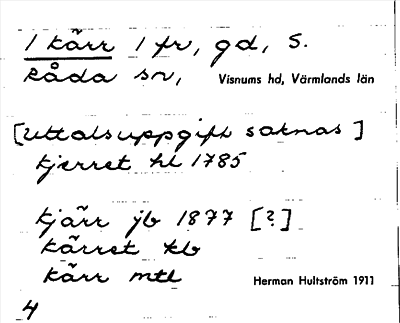 1 kärr 1 fr, gd, S.
Råda sn, Visnums hd, Värmlands län
[Uttalsuppgift saknas]
kjerret hl 1785
kjärr jb 1877 [?]
kärret kb
kärr mtl
Herman Hultström 1911
4